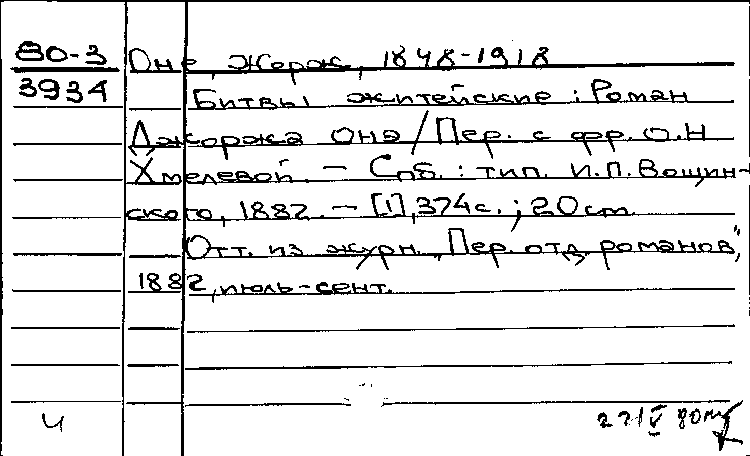 80-3 Оне, Жорж, 1848-1918
3934 Битвы житейские : Роман
Джоржа Онэ / Пер. с фр. О.Н
Хмелевой. – Спб. : тип. И.П. Вощин-
ского, 1882. – [1], 374 с. ; 20 cm.
Отт. из журн. „Пер. отд. романов",
1882, июль-сент.
Ч 22/V 80